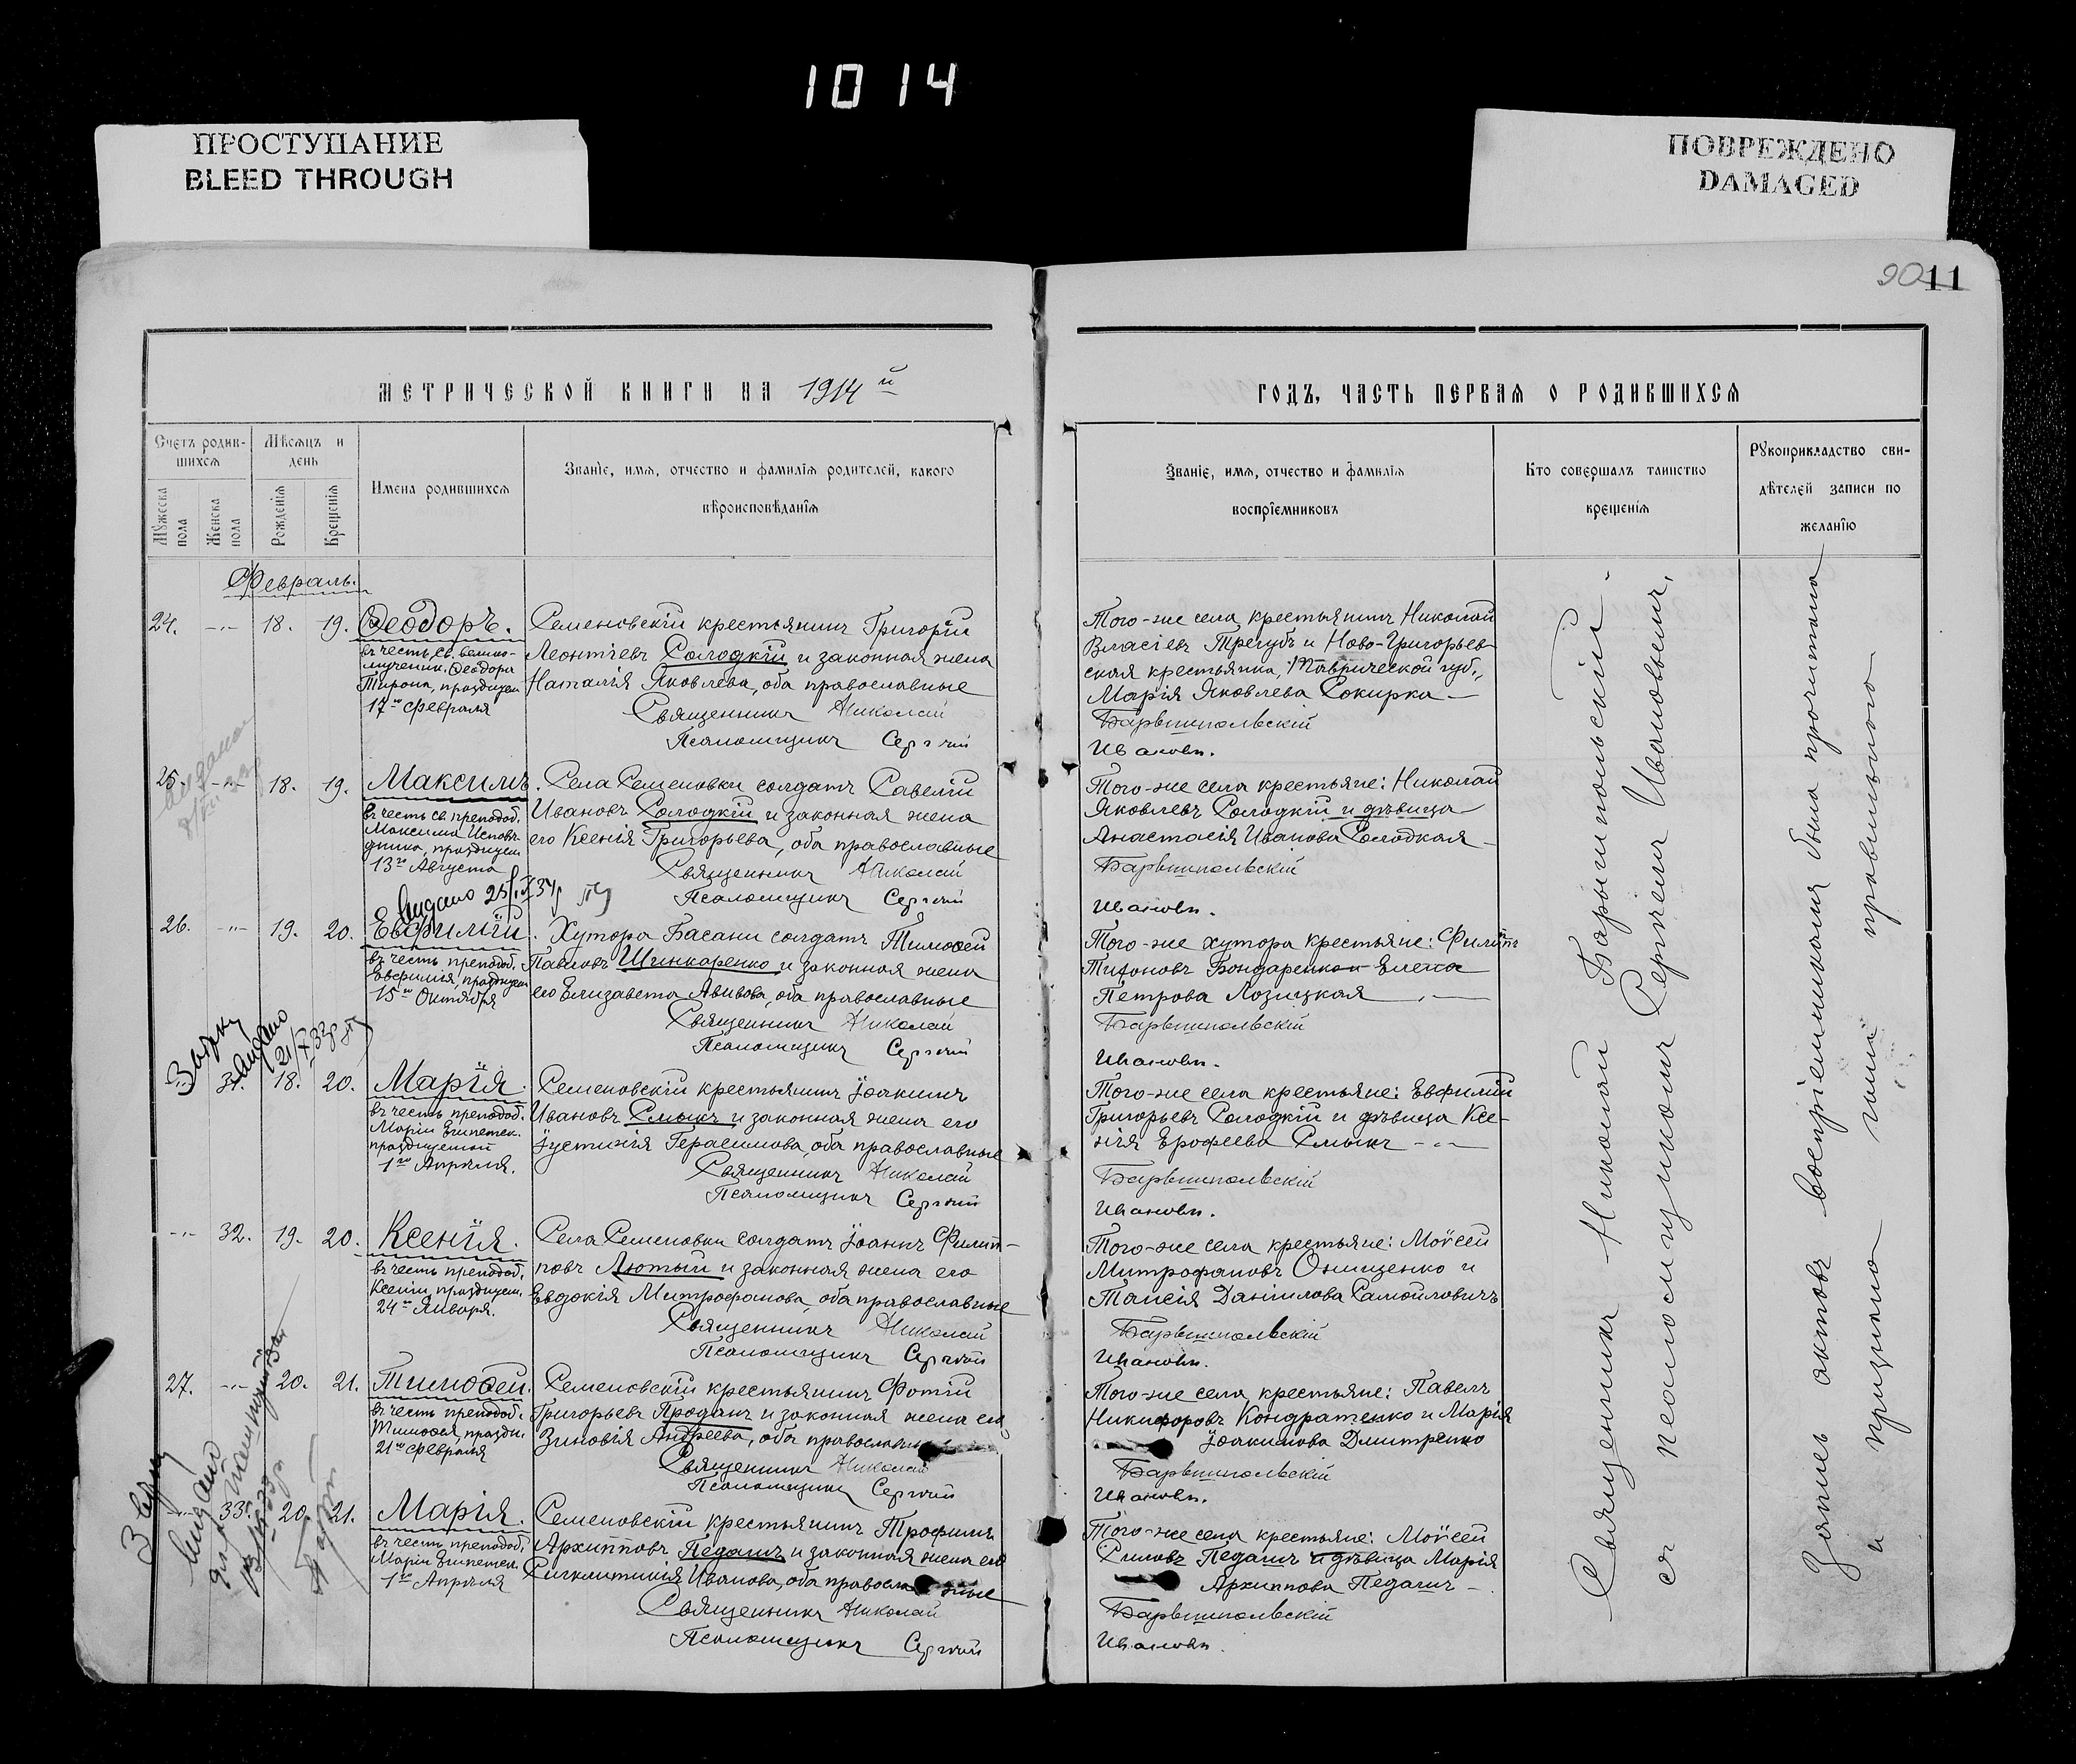 1014
ПРОСТУПАНИЕ
BLEED THROUGH
ПОВРЕЖДЕНО
DAMAGED
90 11
МЕТРИЧЕСКОЙ КНИГИ НА 1914 й
ГОДЪ, ЧАСТЬ ПЕРВАЯ О РОДИВШИХСЯ
Счетъ родив-
шихся
Мѣсяцъ и
день
Мужеска пола
Женска пола
Рожденія
Крещенія
Имена родившихся
Званіе, имя, отчество и фамилія родителей, какого
вѣроисповѣданія
Званіе, имя, отчество и фамилія
воспріемниковъ
Кто совершалъ таинство
крещенія
Рукоприкладство сви-
дѣтелей записи по
желанію
Февраль.
24. -„- 18. 19. Ѳеодоръ.
въ честь св. велико-
мученик. Ѳеодора
Тирона, празднуем
17го февраля
Семеновскій крестьянинъ Григорій
Леонтіевъ Солодкій и законная жена
Наталія Яковлева, оба православные
Священникъ Николай
Псаломщикъ Сергій
Того-же села крестьянинъ Николай
Власіевъ Трегубъ и Ново-Григорьев-
ская крестьянка, Таврической губ.,
Марія Яковлева Сокирка —
Барышпольскій
Ивановъ.
25. -„- 18. 19. Максимъ.
въ честь св. преподоб.
Максима Исповѣ-
дника, празднуем
13го Августа
Села Семеновки солдатъ Савелій
Ивановъ Солодкій и законная жена
его Ксенія Григорьева, оба православные
Священникъ Николай
Псаломщикъ Сергій
Того-же села крестьяне: Николай
Яковлевъ Солодкій и дѣвица
Анастасія Иванова Солодкая —
Барышпольскій
Ивановъ.
26. -„- 19. 20. Евфимій.
въ честь преподоб.
Евфимія, празднуем
15го Октября
Хутора Басани солдатъ Тимоѳей
Павловъ Шинкаренко и законная жена
его Елизавета Авивова, оба православные
Священникъ Николай
Псаломщикъ Сергій
Того-же хутора крестьяне: Филипъ
Тихоновъ Бондаренко и Елена
Петрова Лозицкая
Барышпольскій
Ивановъ.
-„- 31. 18. 20. Марія.
въ честь преподоб.
Маріи Египетск.
празднуемой
1го Апрѣля.
Семеновскій крестьянинъ Іоакимъ
Ивановъ Смыкъ и законная жена его
Іустинія Герасимова, оба православные
Священникъ Николай
Псаломщикъ Сергій
Того-же села крестьяне: Евфимій
Григорьевъ Солодкій и дѣвица Ксе-
нія Ерофеева Смыкъ -„-
Барышпольскій
Ивановъ.
-„- 32. 19. 20. Ксенія.
въ честь преподоб.
Ксеніи, празднуем.
24го Января.
Села Семеновки солдатъ Іоаннъ Филип-
повъ Лютый и законная жена его
Евдокія Митрофанова, оба православные
Священникъ Николай
Псаломщикъ Сергій
Того-же села крестьяне: Моѵсей
Митрофановъ Онищенко и
Таисія Даніилова Самойловичъ
Барышпольскій
Ивановъ.
27. -„- 20. 21. Тимоѳей.
въ честь преподоб.
Тимоѳея, праздн.
21го февраля
Семеновскій крестьянинъ Фотій
Григорьевъ Проданъ и законная жена его
Зиновія Андреева, оба православны
Священникъ Николай
Псаломщикъ Сергій
Того-же села крестьяне: Павелъ
Никифоровъ Кондратенко и Марія
Іоакимова Дмитренко
Барышпольскій
Ивановъ.
-„- 33. 20. 21. Марія.
въ честь преподоб.
Маріи Египетск.
1го Апрѣля
Семеновскій крестьянинъ Трофимъ
Архипповъ Педашъ и законная жена его
Синклитикія Иванова, оба православные
Священникъ Николай
Псаломщикъ Сергій
Того-же села крестьяне: Моѵсей
Силовъ Педашъ и дѣвица Марія
Архиппова Педашъ —
Барышпольскій
Ивановъ.
Священникъ Николай Барышпольскій
съ псаломщикомъ Сергіемъ Ивановымъ.
Запись актовъ воспріемниками была прочитана
и признана ими правильною